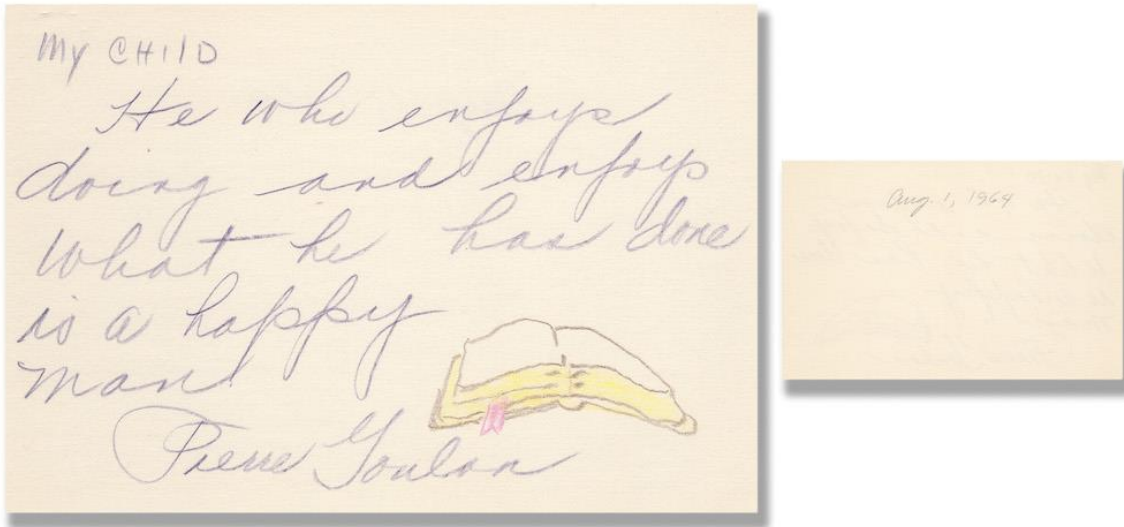 My CHILD
He who enjoys
doing and enjoys
what he has done
is a happy
man
Pierre
Aug. 1, 1964